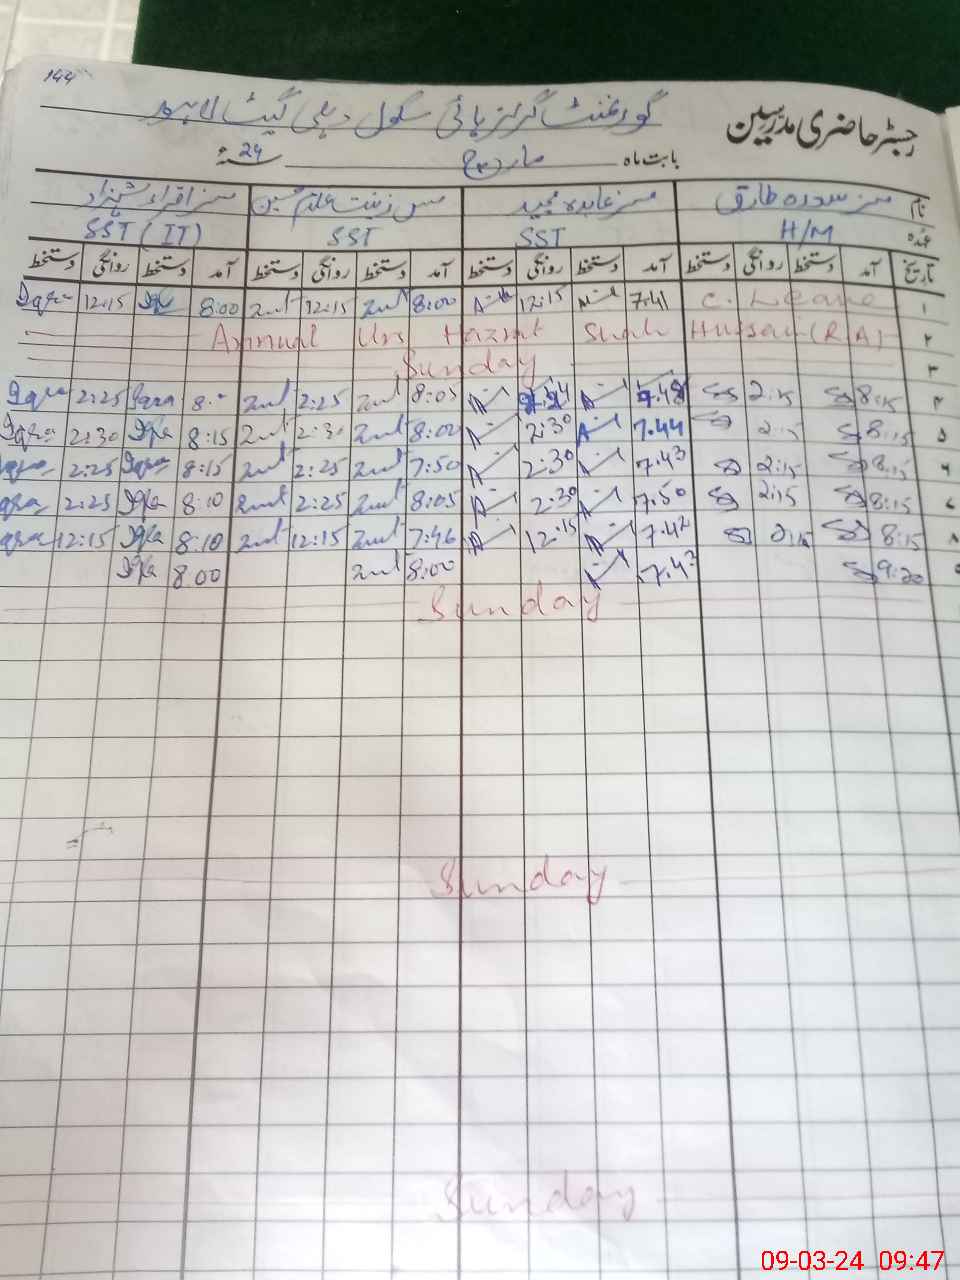 144
رجسٹر حاضری مدرسین
گورنمنٹ گرلز ہائی سکول دہلی گیٹ لاہور
بابت ماہ مارچ سنہ 24ء
نام مسز سعدہ طارق مسز عابدہ مجید مس زینت غلام حسین مسز اقراء شہزاد
عہدہ H/M SST SST SST (IT)
تاریخ آمد دستخط روانگی دستخط آمد دستخط روانگی دستخط آمد دستخط روانگی دستخط آمد دستخط روانگی دستخط
۱ C. Leave 7.41 12:15 8:00 12:15 8:00 12:15 Iqra
۲ Annual Urs Hazrat Shah Hussain (RA)
۳ Sunday
۴ 8:15 2:15 7.48 8:05 2:25 Iqra 2:25 Iqra
۵ 8:15 2:15 7.44 2:30 8:00 2:30 8:15 Iqra 2:30 Iqra
۶ 8:15 2:15 7.43 2:30 7:50 2:25 8:15 Iqra 2:25 Iqra
۷ 8:15 2:15 7.50 2:30 8:05 2:25 8:10 Iqra 2:25 Iqra
۸ 8:15 2:15 7.42 12:15 7:46 12:15 8:10 Iqra 12:15 Iqra
9:20 7.43 8:00 8.00 Iqra
Sunday
Sunday
Sunday
09-03-24 09:47